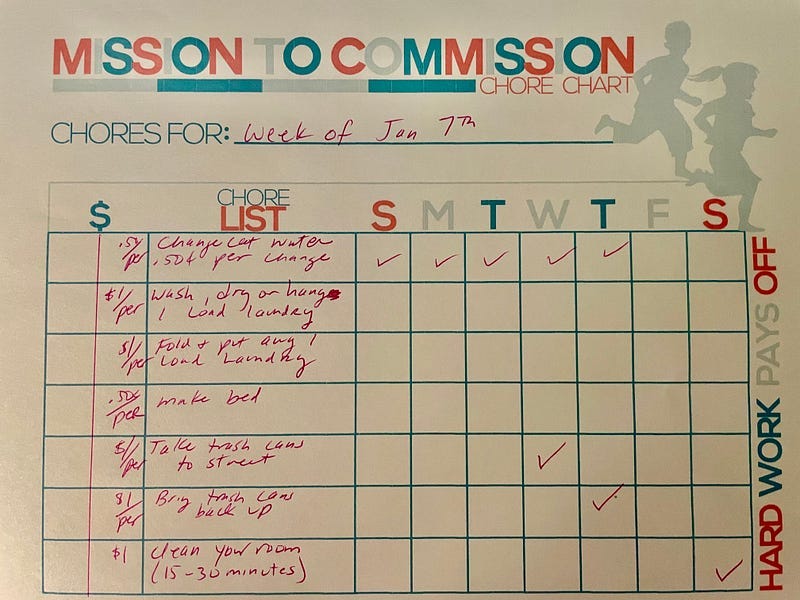 MISSION TO COMMISSION
CHORE CHART
CHORES FOR: Week of Jan 7TH
$ CHORE LIST S M T W T F S
.50/per Change cat water
.50¢ per change
✓ ✓ ✓ ✓ ✓
$1/per Wash, dry or hang
1 load laundry
$1/per Fold + put away 1
Load Laundry
.50¢/per make bed
$1/per Take trash cans
to street
✓
$1/per Brig trash cans
back up
✓
$1 clean your room
(15-30 minutes)
✓
HARD WORK PAYS OFF